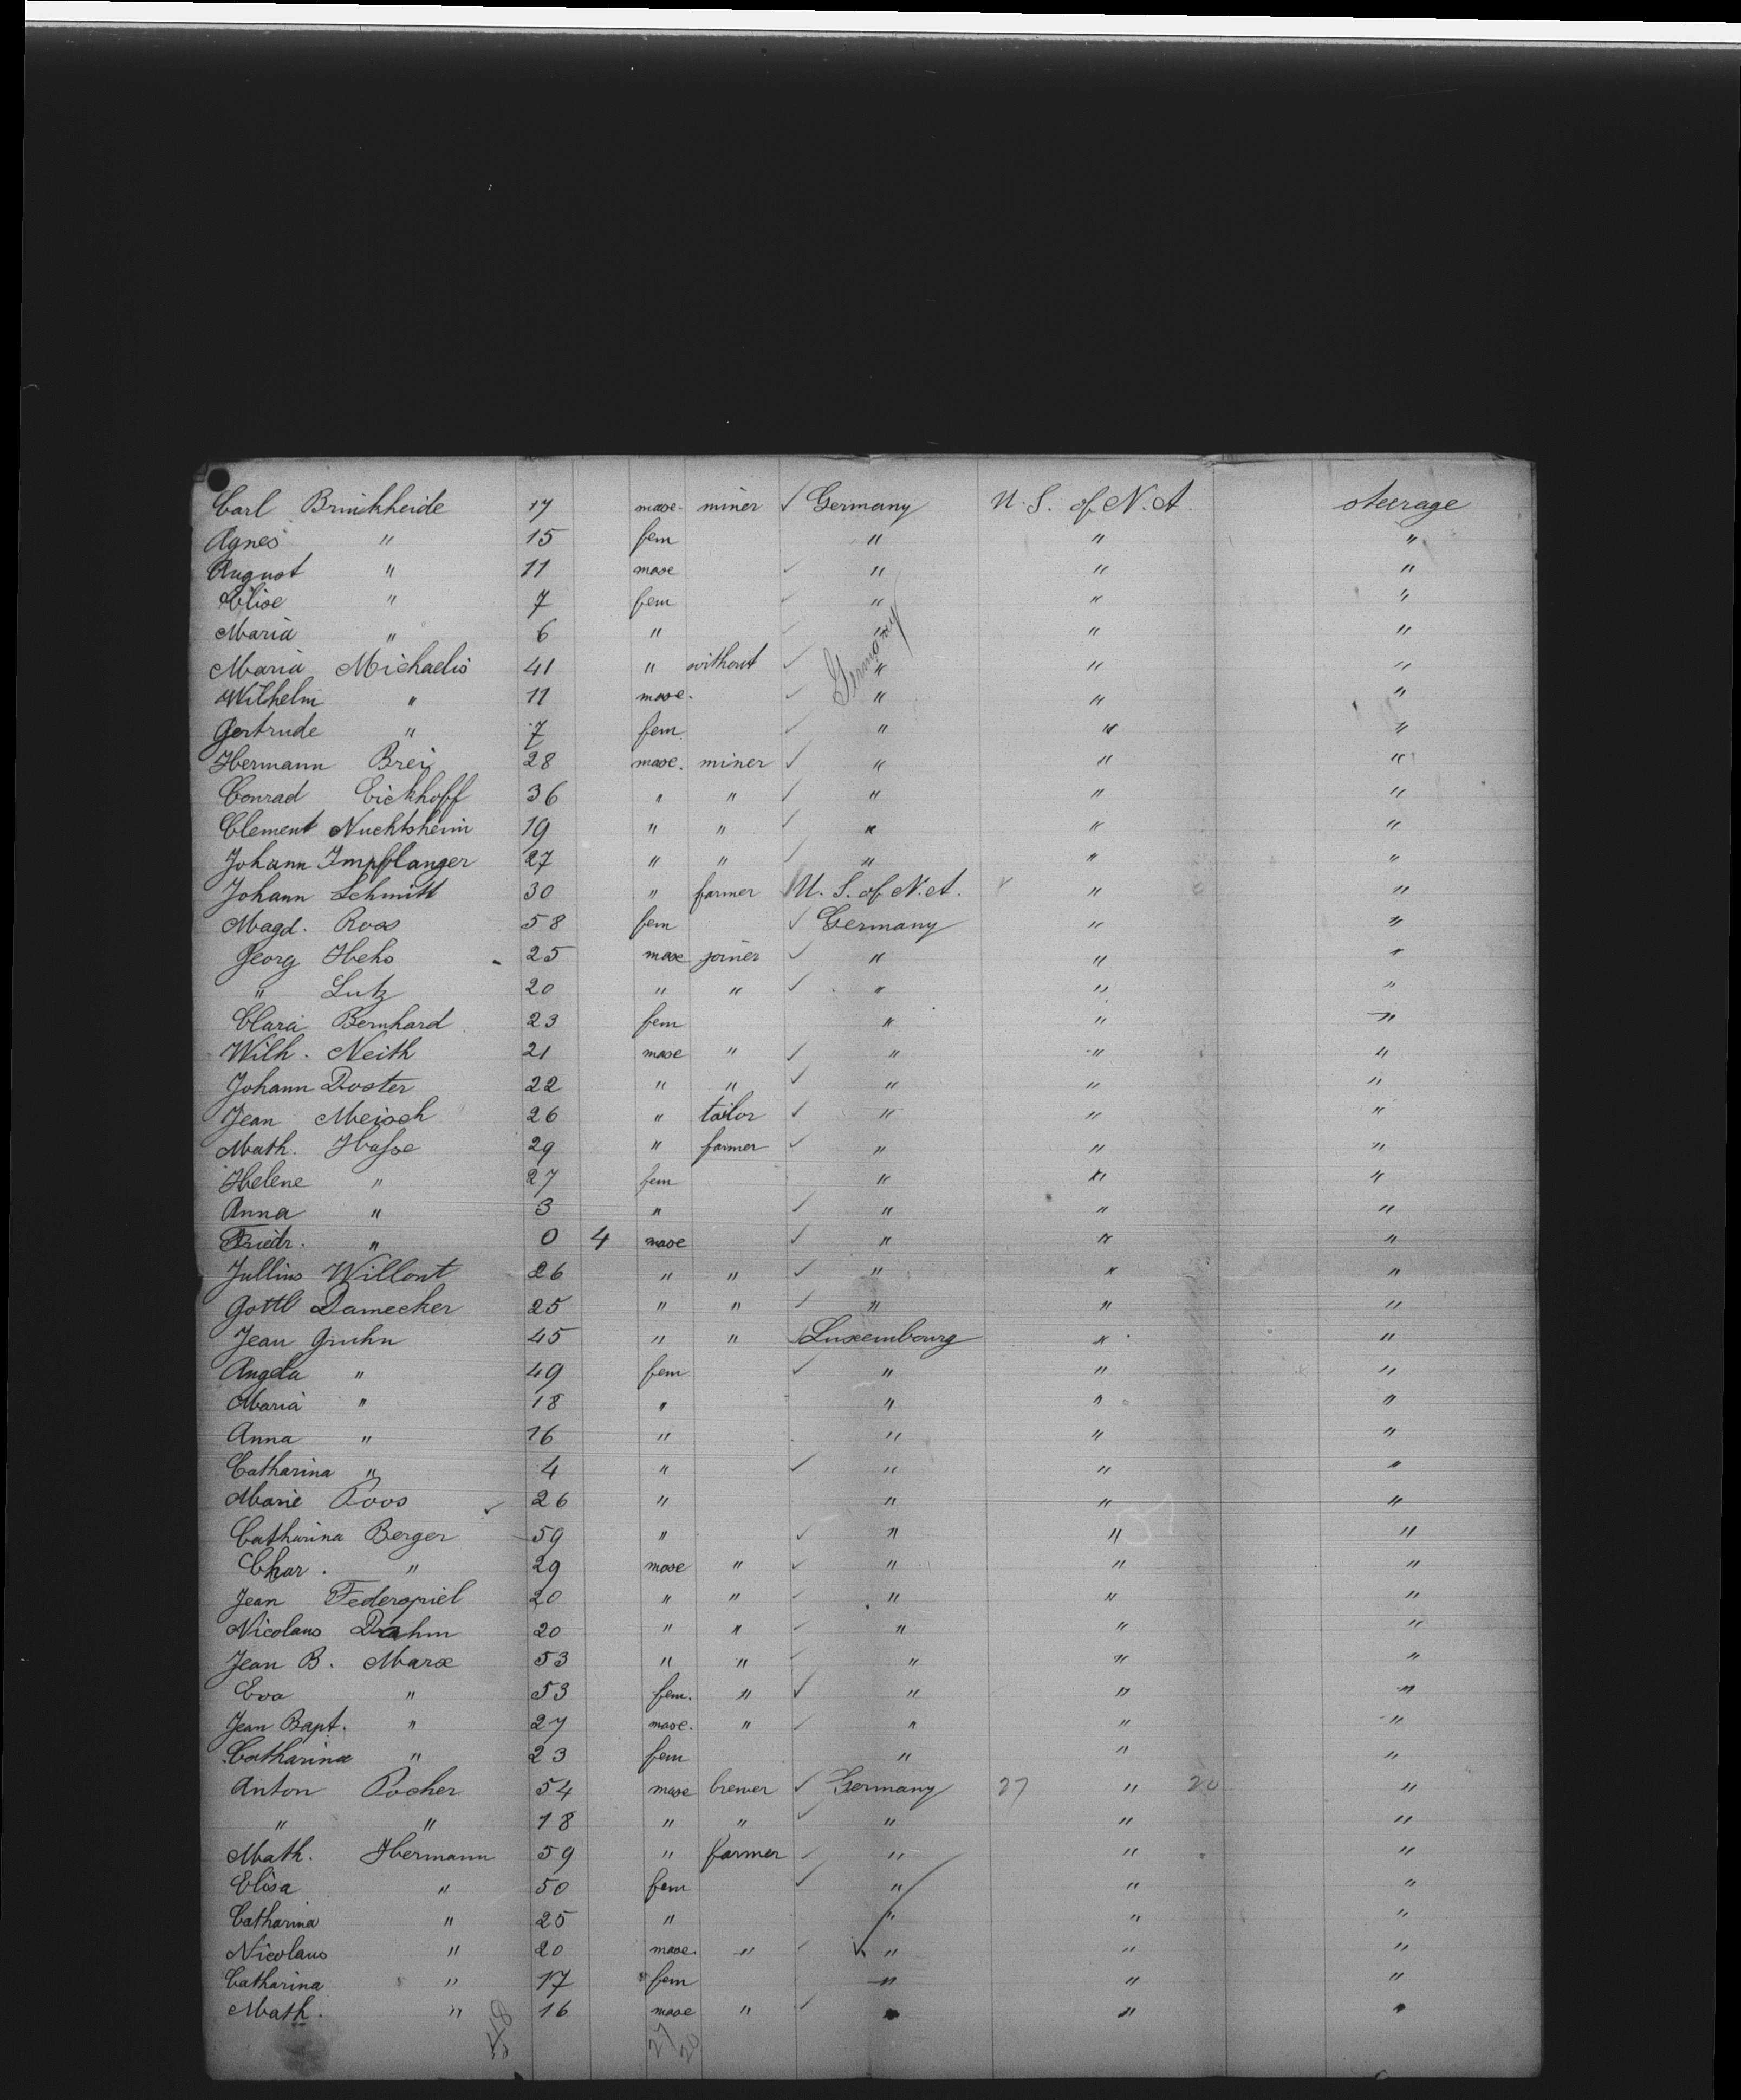 Carl Brinkheide 17 masc. miner ✓ Germany U. S. of N. A. steerage
Agnes " 15 fem " " "
August " 11 masc ✓ " " "
Elise " 7 fem ✓ " " "
Maria " 6 " ✓ " " "
Germany
Maria Michaelis 41 " without ✓ " " "
Wilhelm " 11 masc. ✓ " " "
Gertrude " 7 fem ✓ " " "
Hermann Brei 28 masc. miner ✓ " " "
Conrad Eickhoff 36 " " ✓ " " "
Clement Nuchtsheim 19 " " ✓ " " "
Johann Impflanger 27 " " ✓ " " "
Johann Schmitt 30 " farmer ✓ U. S. of N. A. " "
Magd. Roos 58 fem ✓ Germany " "
Georg Heks 25 masc joiner ✓ " " "
" Lutz 20 " " ✓ " " "
Clara Bernhard 23 fem " " "
Wilh. Neith 21 masc " ✓ " " "
Johann Doster 22 " " ✓ " " "
Jean Meisch 26 " tailor ✓ " " "
Math. Hasse 29 " farmer ✓ " " "
Helene " 27 fem " " "
Anna " 3 " ✓ " " "
Friedr. " 0 4 masc ✓ " " "
Jullius Willont 26 " " ✓ " " "
Gottl Damecker 25 " " ✓ " " "
Jean Gruhn 45 " " ✓ Luxembourg " "
Angela " 49 fem ✓ " " "
Maria " 18 " " " "
Anna " 16 " " " "
Catharina " 4 " ✓ " " "
Marie Roos ✓ 26 " " " "
Catharina Berger 59 " ✓ " " "
Char. " 29 masc " ✓ " " "
Jean Federspiel 20 " " ✓ " " "
Nicolaus Dahm 20 " " ✓ " " "
Jean B. Marx 53 " " ✓ " " "
Eva " 53 fem. " ✓ " " "
Jean Bapt. " 27 masc. " ✓ " " "
Catharina " 23 fem " " "
Anton Pocher 54 masc brewer ✓ Germany 27 " 20 "
" " 18 " " ✓ " " "
Math. Hermann 59 " farmer ✓ " " "
Elisa " 50 fem ✓ " " "
Catharina " 25 " " " "
Nicolaus " 20 masc. " ✓ " " "
Catharina " 17 fem " " "
Math. " 16 masc " ✓ " " "
48 27 20